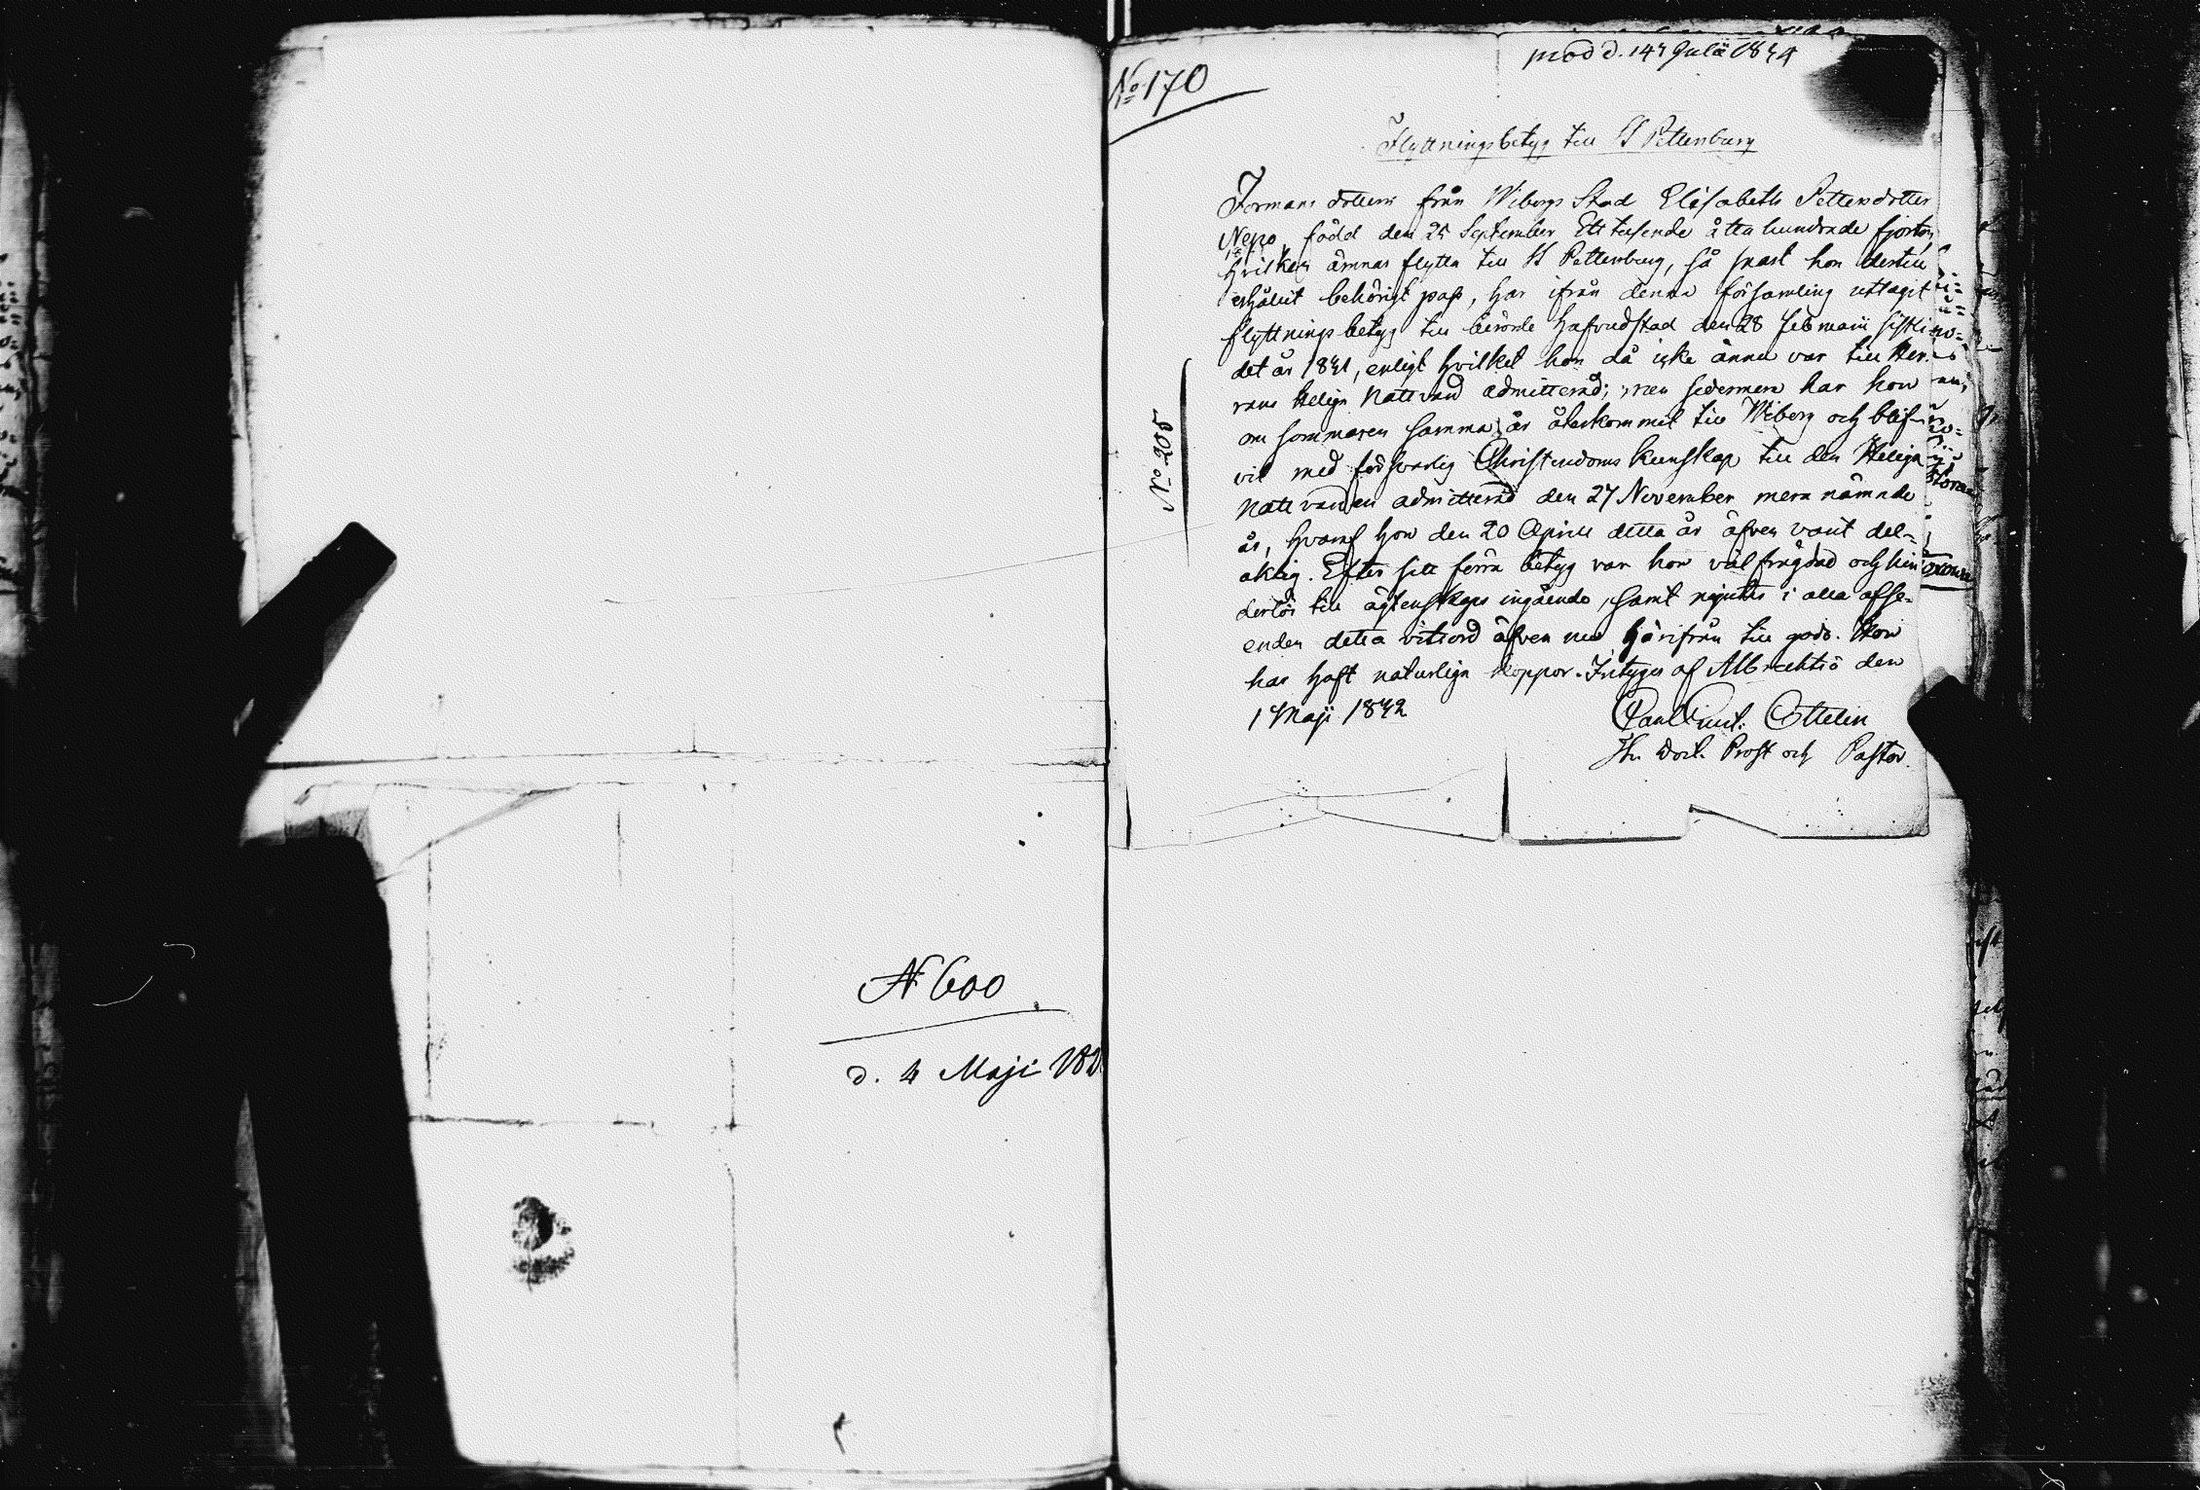 N 600
d. 4 Maji 18
No 170
d. 14 Julii 1834
Flyttningsbetyg till St Pettersburg
Formans dottern från Wiborgs Stad Elisabeth Pettersdotter
Nepo, född den 25 September Ett tusende åtta hundrade fjorton,
hvilken ämnar flytta till St Pettersburg, så snart hon dertill
erhållit behörigt pass, har ifrån denna församling uttagit
flyttningsbetyg till berörde hufvudstad den 28 Februarii sistl
det år 1831, enligt hvilket hon då icke ännu var till Her-
rans Heliga Nattvard admitterad; men sedermera har hon
om sommaren samma år återkommit till Wiborg och blif-
vit med försvarlig Christendoms kunskap till den Heliga
Nattvarden admitterad den 27 November mera nämnde
år, hvaraf hon den 20 April detta år äfven varit del-
aktig. Efter sitt förra betyg var hon välfrägdad och hin
derlös till ägtenskaps ingående, samt njuter i alla afse-
enden detta vitsord äfven nu härifrån till godo. Hon
har haft naturliga koppor. Intygas af den
1 Maji 1832
Ottelin
Th. Doct. Prost och Pastor.
No 205